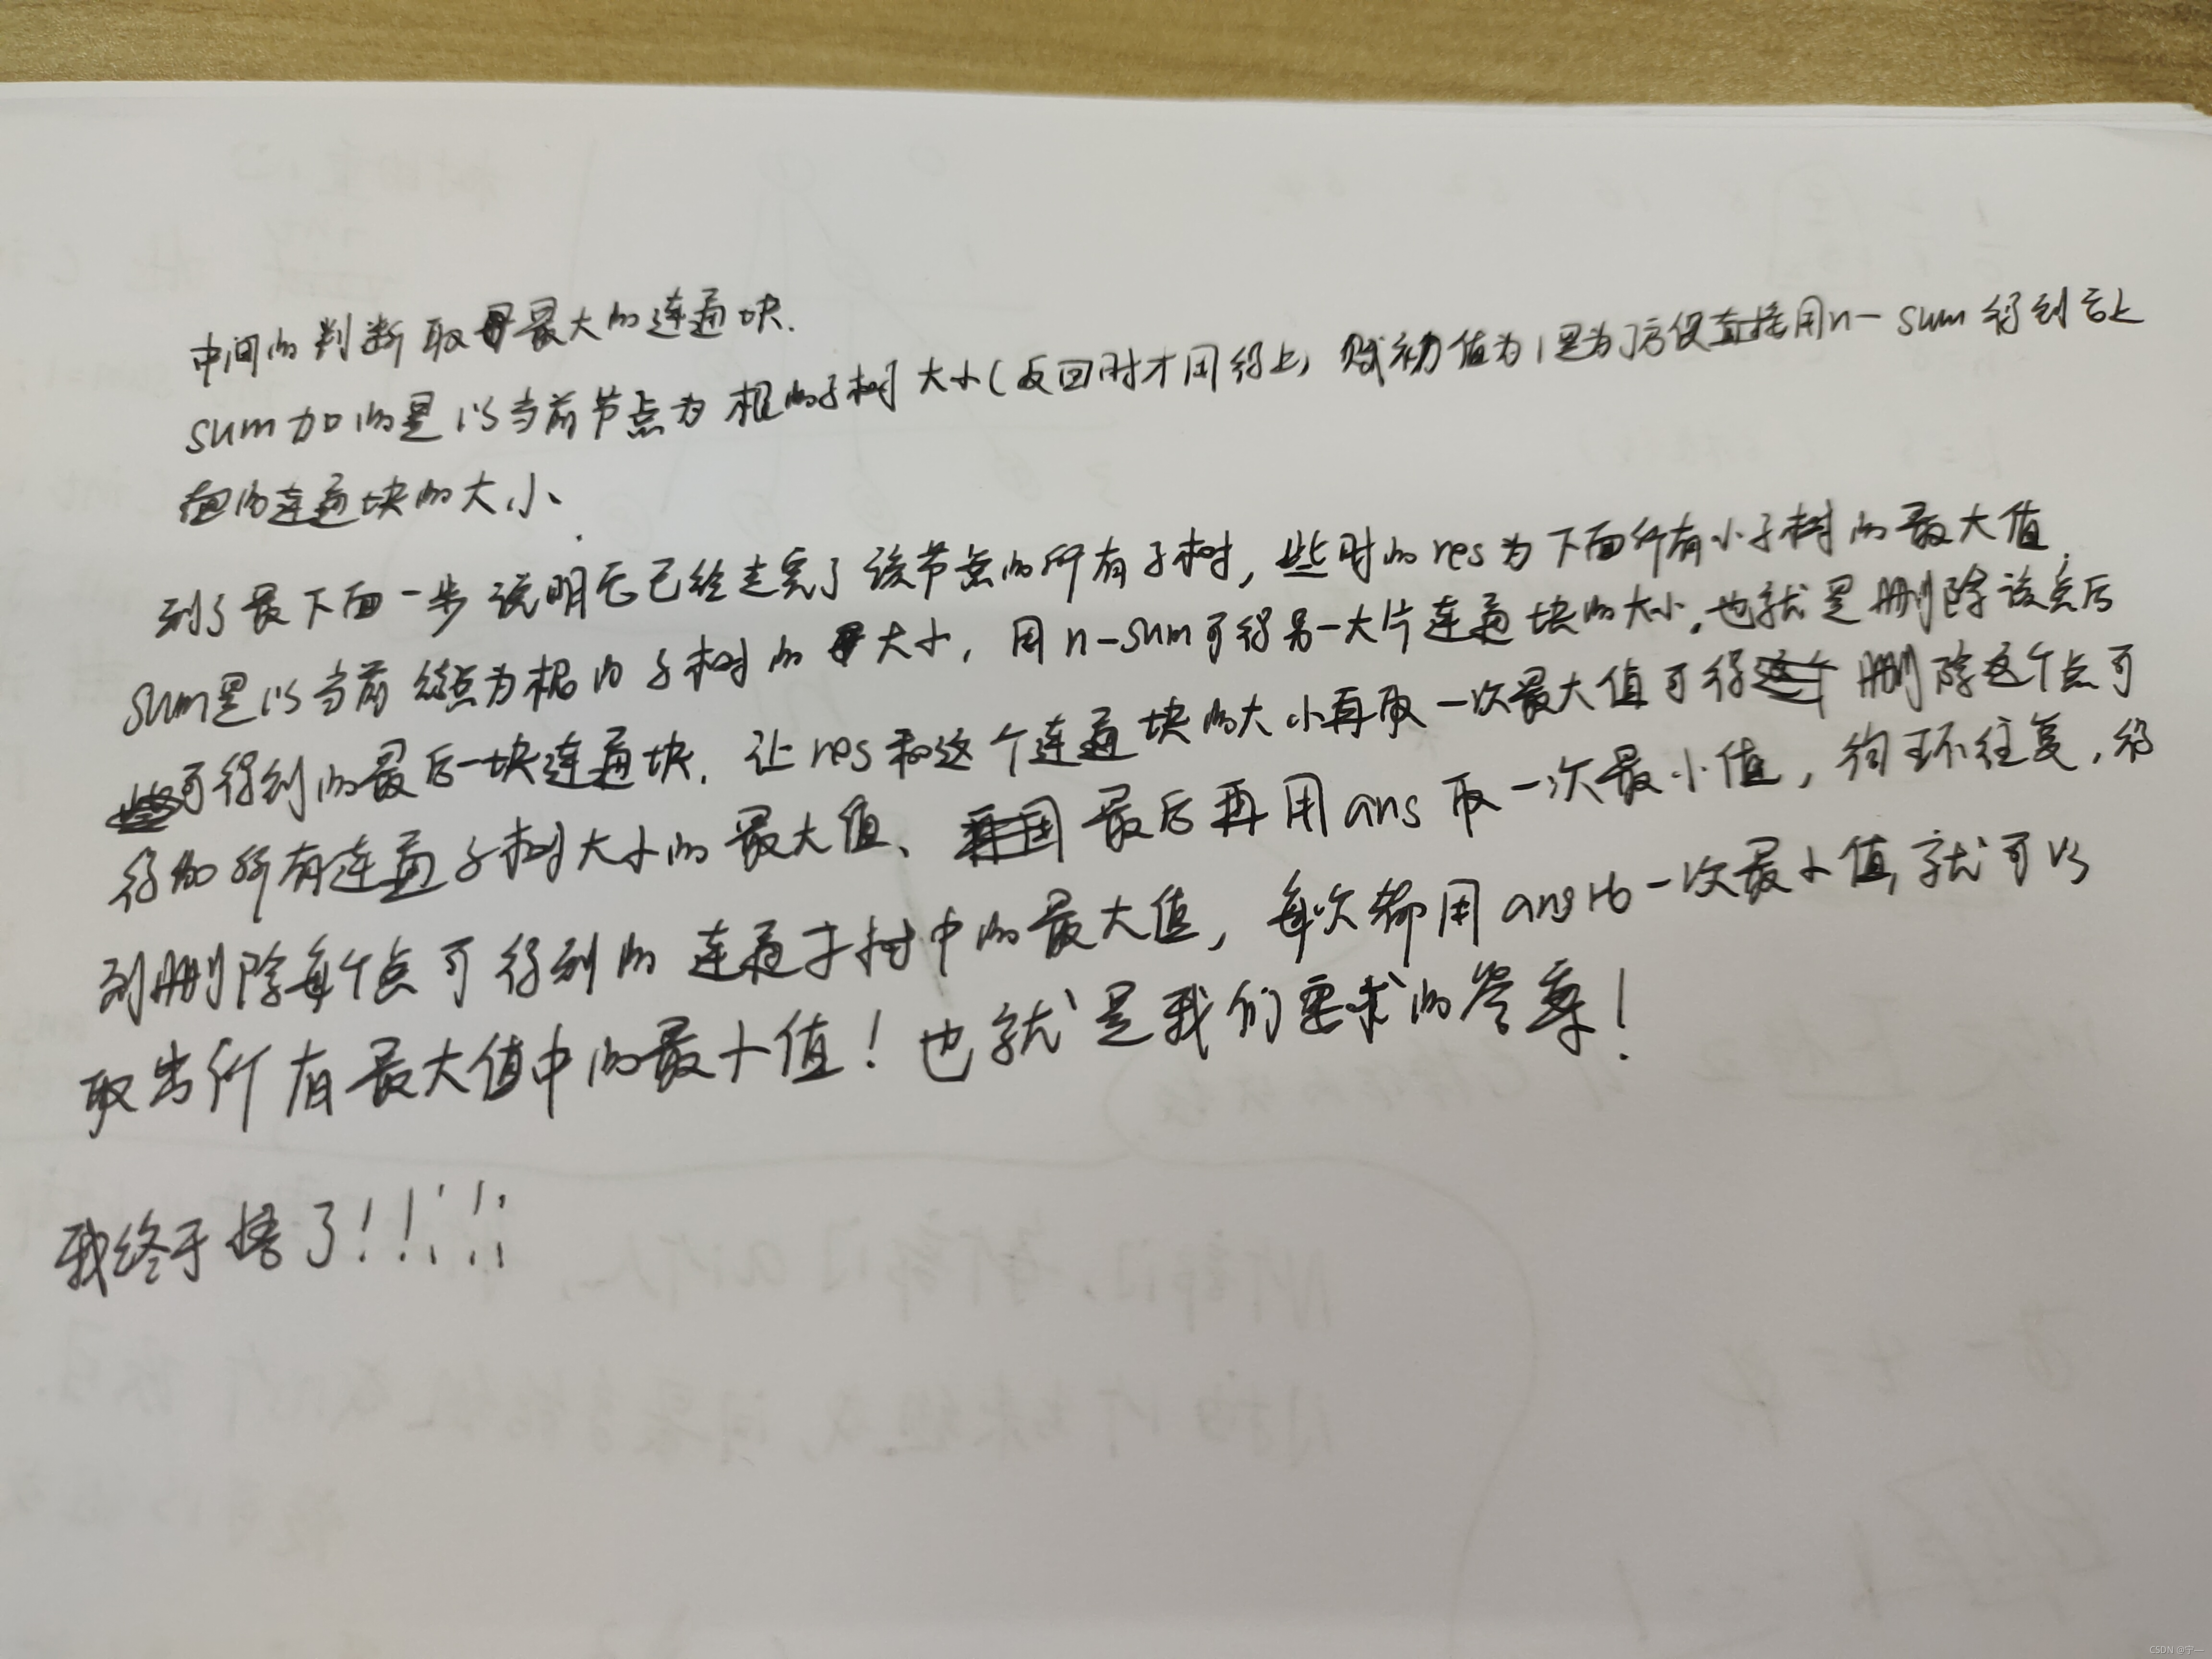 中间的判断取最大的连通块.
sum加的是以当前节点为根的子树大小(返回时才用得上,赋初值为1是为了方便直接用n-sum得到它上
面的连通块的大小、
到了最下面一步说明它已经走完了该节点的所有子树,此时的res为下面所有小子树的最大值,
sum是以当前结点为根的子树的大小,用n-sum可得另一大片连通块的大小,也就是删除该点后
可得到的最后一块连通块.让res和这个连通块的大小再取一次最大值可得删除这个点可
得的所有连通子树大小的最大值、最后再用ans取一次最小值,徇环往复,得
到删除每个点可得到的连通子树中的最大值,每次都用ans取一次最小值,就可以
取出所有最大值中的最小值!也就是我们要求的答案!
我终于悟了!!!!!
CSDN @宇一